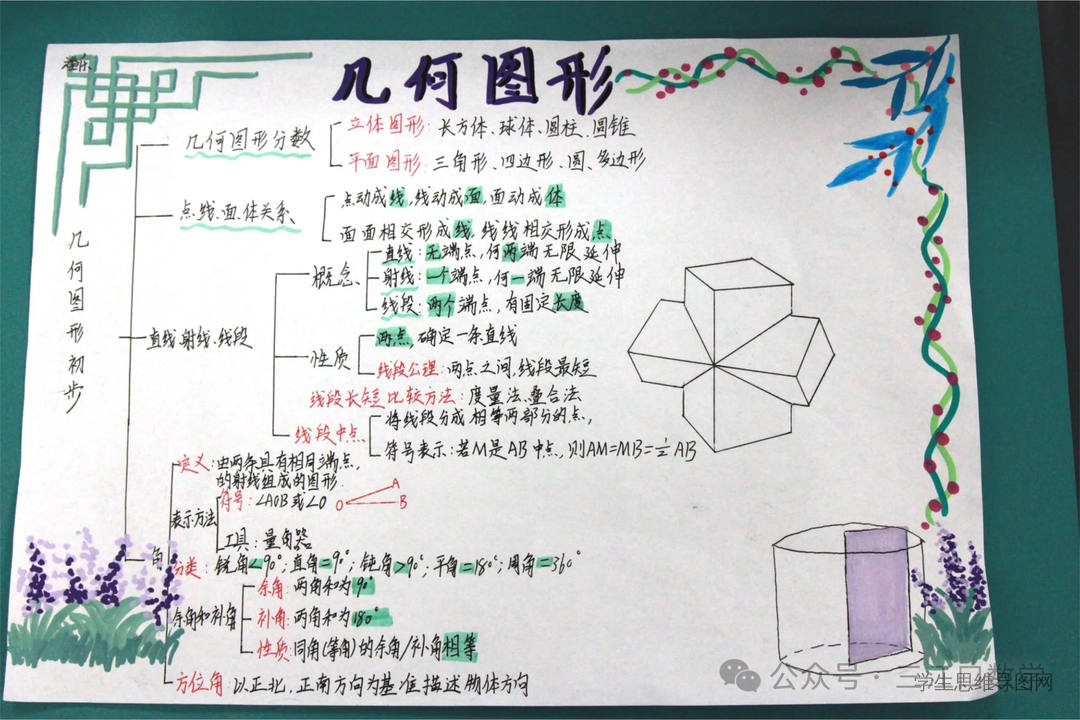 几何图形
几何图形初步
几何图形分数
立体图形：长方体、球体、圆柱、圆锥
平面图形：三角形、四边形、圆、多边形
点、线、面、体关系、
点动成线，线动成面，面动成体
面面相交形成线，线线相交形成点、
直线、射线、线段
概念、
直线：无端点，何两端无限延伸
射线：一个端点，何一端无限延伸
线段：两个端点，有固定长度
性质
两点，确定一条直线
线段公理：两点之间，线段最短
线段长短比较方法：度量法、叠合法
线段中点、
将线段分成相等两部分的点，
符号表示：若M是AB中点，则AM=MB=½AB
角
定义：由两条具有相同端点，
的射线组成的图形.
表示方法
符号：∠AOB或∠O
A
O
B
工具：量角器
分类：锐角<90°；直角=90°；钝角>90°；平角=180°；周角=360°
余角和补角
余角：两角和为90°
补角：两角和为180°
性质：同角(等角)的余角/补角相等
方位角：以正北，正南方向为基准描述物体方向
公众号·三
数学
学生思维导图网